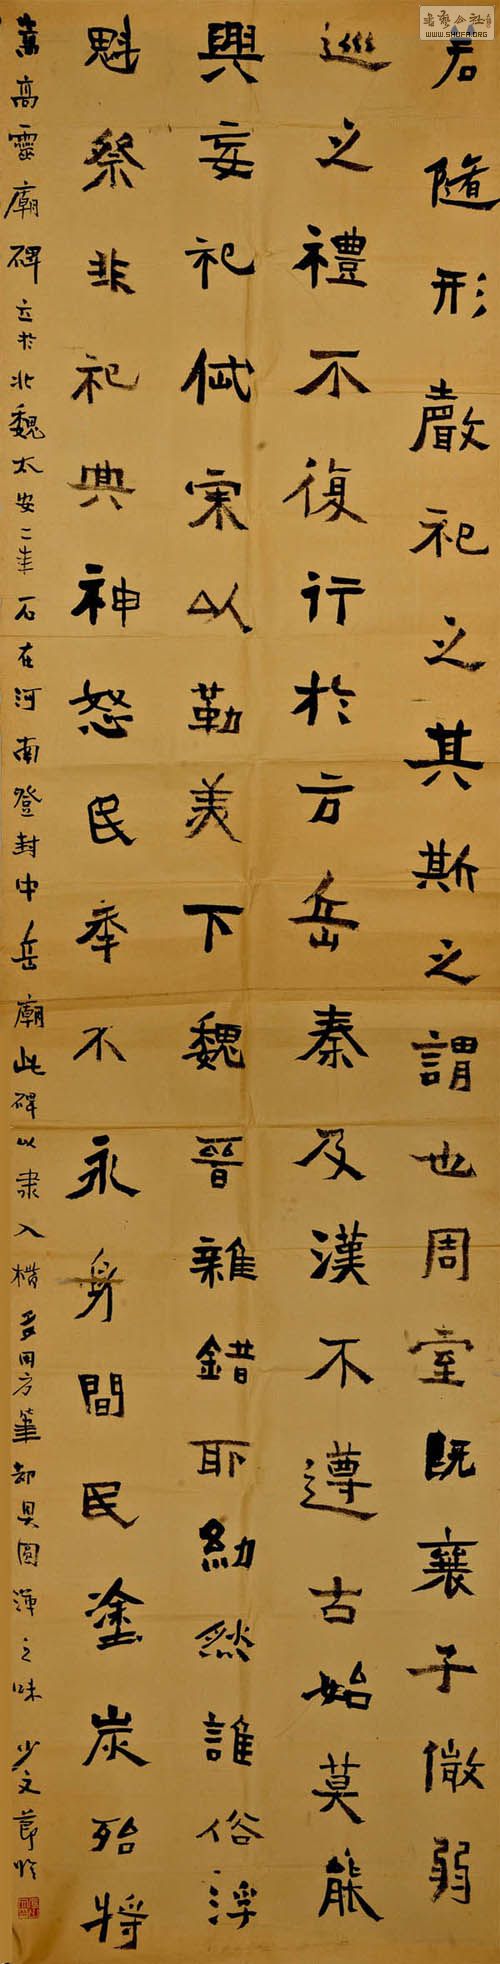 若隨形聲祀之其斯之謂也周室既襄子微弱
巡之禮不復行於方岳秦及漢不遵古始莫能
興妄祀岱宗以勒美下魏晉雜錯耶幼然誰俗浮
魁祭非祀典神怒民率不永身間民塗炭殆將
嵩高靈廟碑立於北魏太安二年石在河南登封中岳廟此碑以隸入楷多用方筆卻具圓渾之味 少文節臨
书艺公社
WWW.SHUFA.ORG